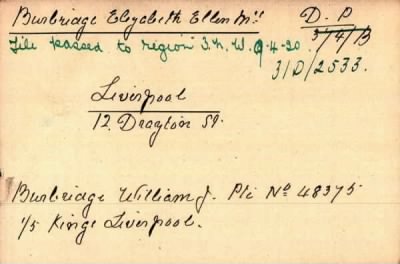 Burbridge Elizabeth Ellen Mrs D. P
3/4/B
File passed to region 3. N. W. 9-4-20.
3/D/2533.
Liverpool
12, Drayton St.
Burbridge William J. Pte No 48375
1/5 Kings Liverpool.